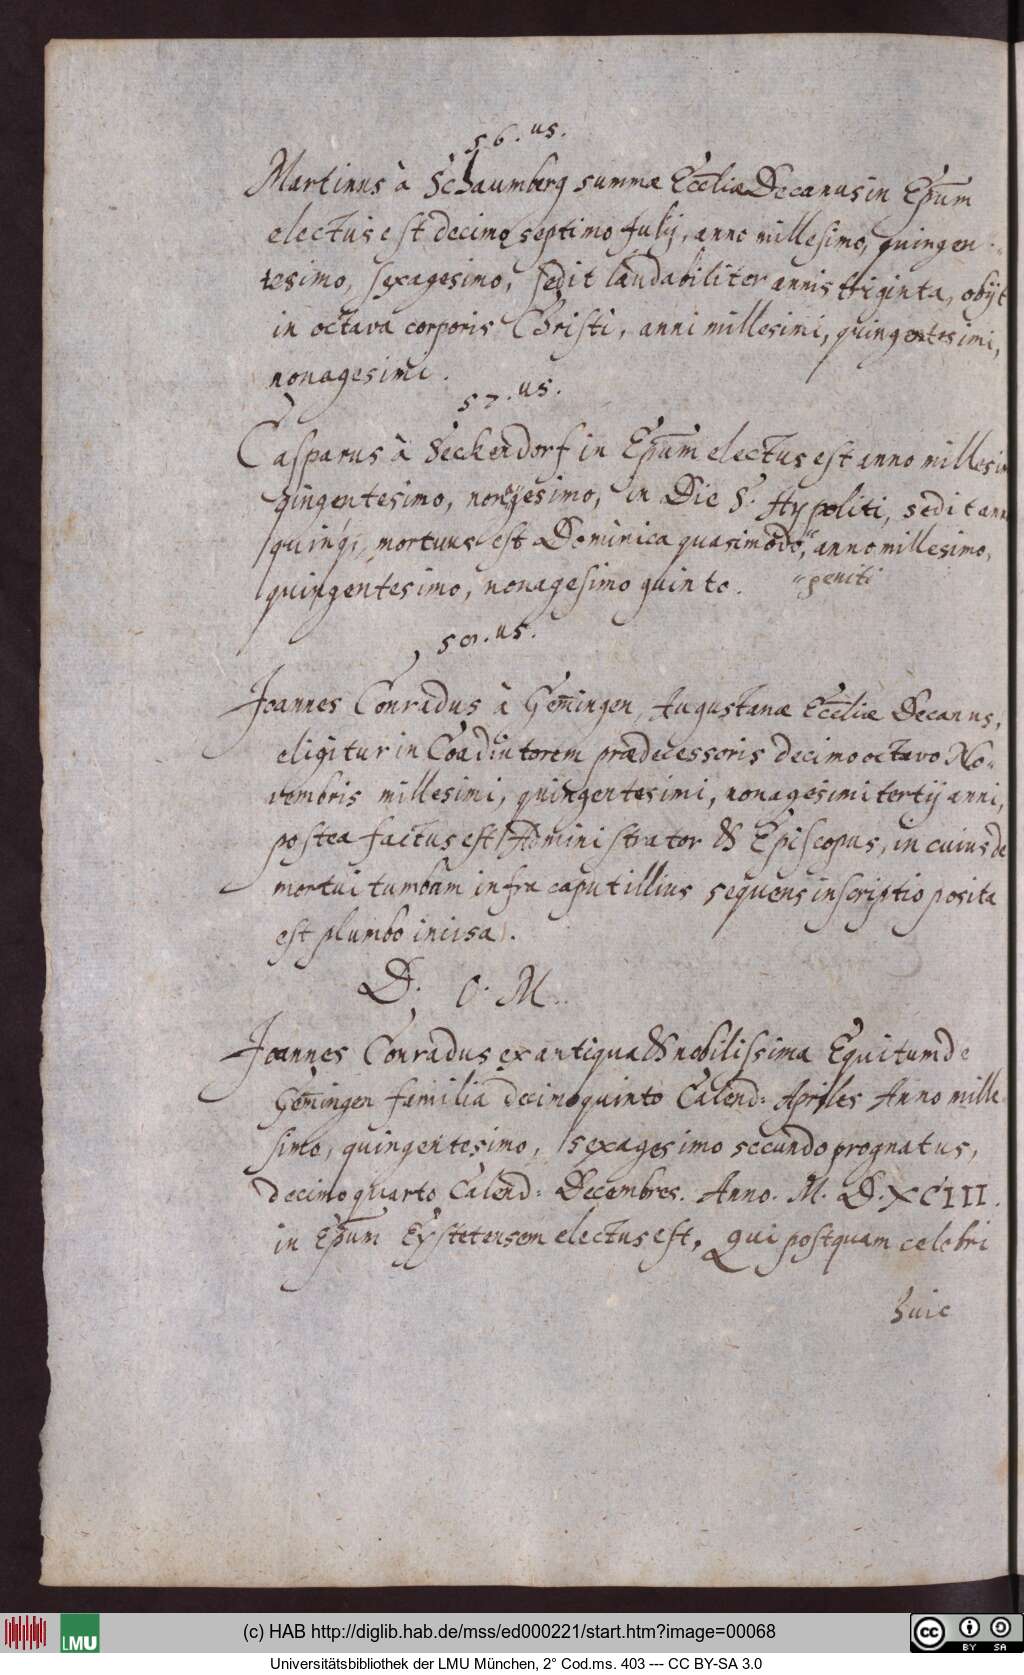 56.us.
Martinus à Schaumberg summæ Eccliæ Decanus in Epum
electus est decimo septimo Julij, anno millesimo, quingen-
tesimo, sexagesimo, sedit laudabiliter annis triginta, obijt
in octava corporis Christi, anni millesimi, quingentesimi,
nonagesimi.
57.us.
Casparus à Seckendorf in Epum electus est anno millesi
qingentesimo, nonagesimo, in Die S. Hyppoliti, sedit ann
quinq;, mortuus est Dominica quasimodo, anno millesimo,
quingentesimo, nonagesimo quinto. geniti
58.us.
Joannes Conradus à Gemingen, Augustanæ Eccliæ Decanus,
eligitur in Coadiutorem prædecessoris decimo octavo No-
vembris millesimi, quingentesimi, nonagesimi tertij anni,
postea factus est Administrator & Episcopus, in cuius de
mortui tumbam infra caput illius sequens inscriptio posita
est plumbo incisa.
D. O. M.
Joannes Conradus ex antiqua & nobilissima Equitum de
Gemingen familia decimoquinto Calend: Apriles Anno mille
simo, quingentesimo, sexagesimo secundo prognatus,
decimo quarto Calend: Decembres. Anno. M. D. XCIII.
in Epum Eystetensem electus est, Qui postquam celebri
huic
(c) HAB http://diglib.hab.de/mss/ed000221/start.htm?image=00068
LMU
CC BY SA
Universitätsbibliothek der LMU München, 2° Cod.ms. 403 --- CC BY-SA 3.0